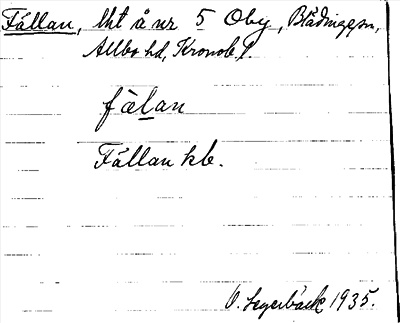 Fällan, lht å nr 5 Oby, Blädinge sn,
Allbo hd, Kronob l.
fälan
Fällan kb.
O. Segerbäck 1935.